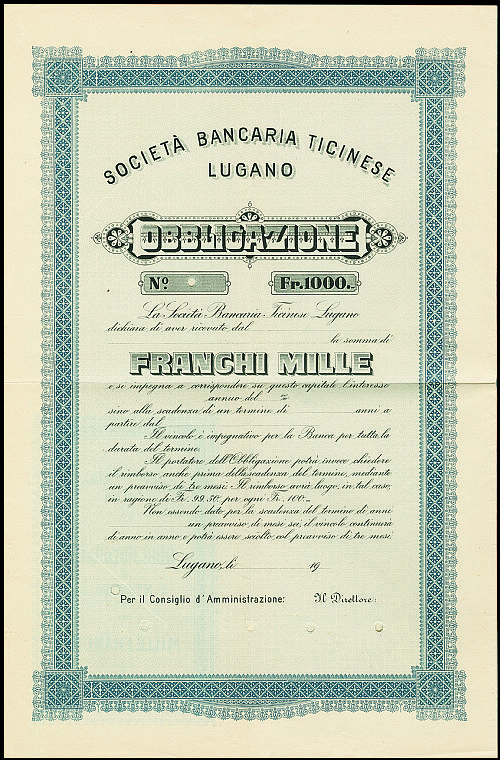 SOCIETÀ BANCARIA TICINESE
LUGANO
OBBLIGAZIONE
Nº
Fr.1000.-
La Società Bancaria Ticinese Lugano
dichiara di aver ricevuto dal
la somma di
FRANCHI MILLE
e si impegna a corrispondere su questo capitale l'interesse
annuo del %
sino alla scadenza di un termine di anni a
partire dal
Il vincolo è impegnativo per la Banca per tutta la
durata del termine.
Il portatore dell'Obbligazione potrà invece chiedere
il rimborso anche prima della scadenza del termine, mediante
un preavviso di tre mesi: Il rimborso avrà luogo, in tal caso,
in ragione di Fr. 99.50. per ogni Fr. 100.-
Non essendo dato per la scadenza del termine di anni
un preavviso di mesi sei, il vincolo continuerà
di anno in anno e potrà essere sciolto col preavviso di tre mesi.
Lugano, li 19
Per il Consiglio d'Amministrazione:
Il Direttore: